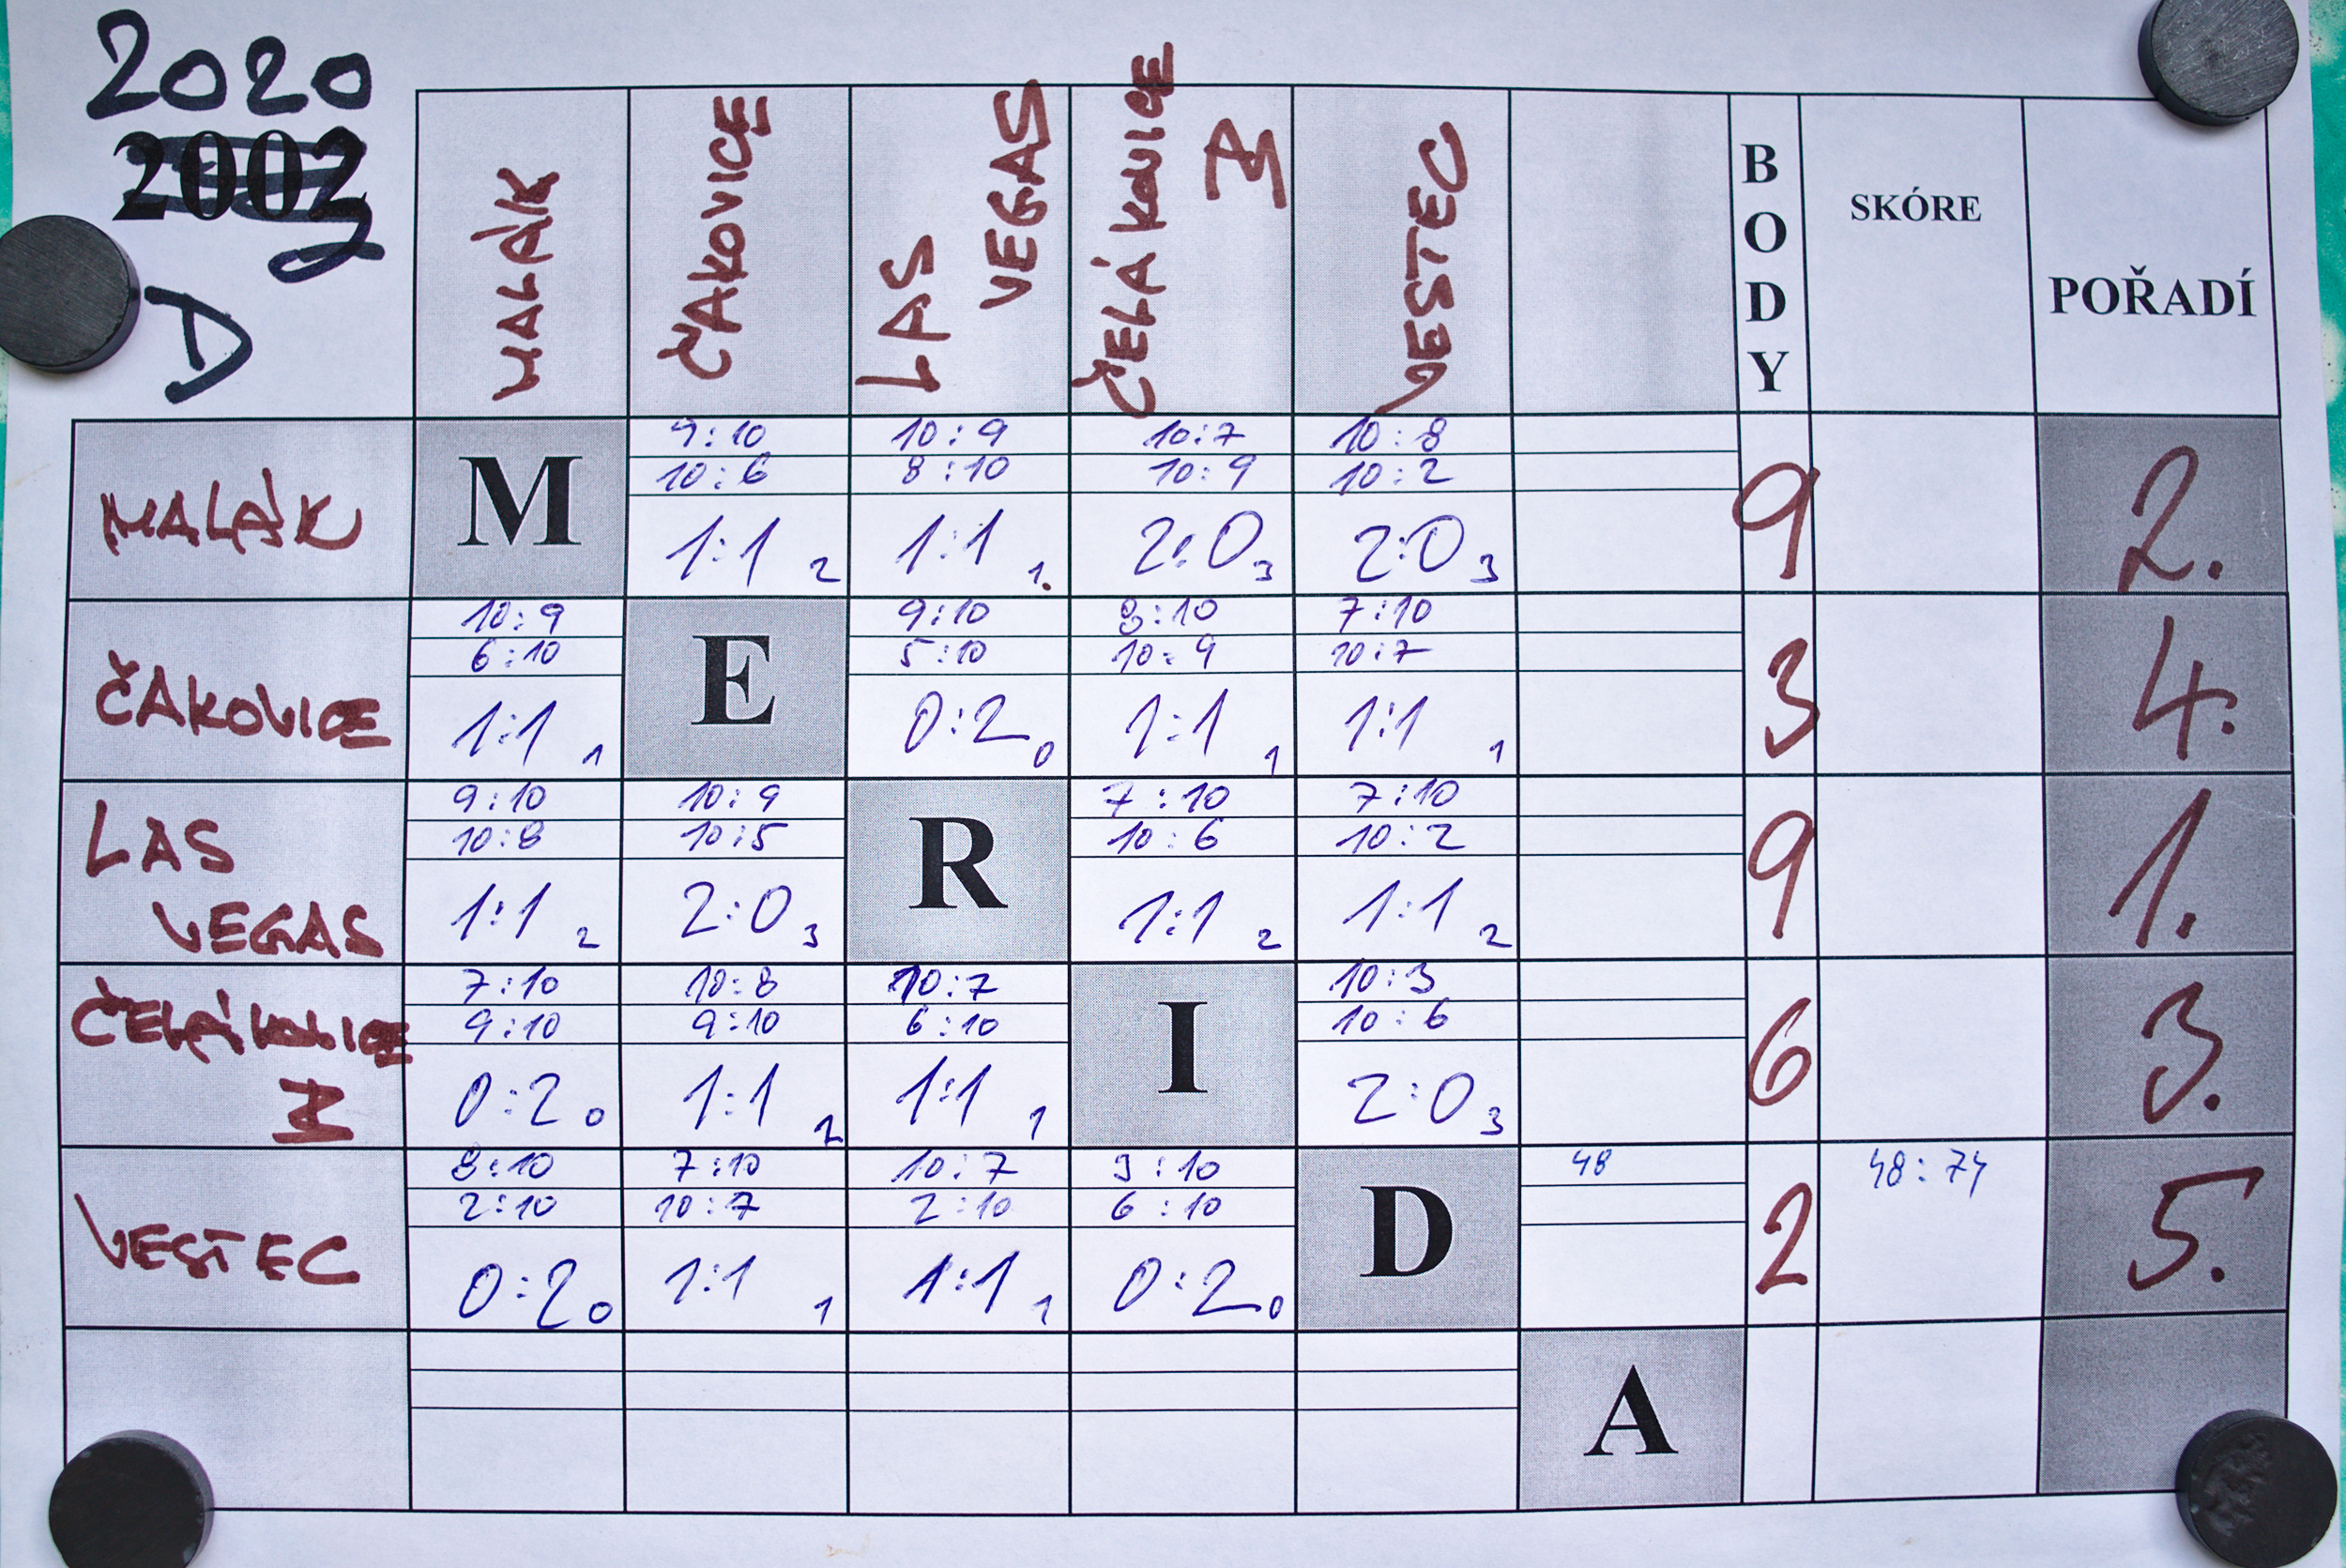 2020
2002
D
MALÁK
ČAKOVICE
LAS VEGAS
ČELÁKOVICE Z
VESTEC
BODY
SKÓRE
POŘADÍ
MALÁK
M
9:10
10:6
1:1 2
10:9
8:10
1:1 1.
10:7
10:9
2:0 3
10:8
10:2
2:0 3
9
2.
ČAKOVICE
10:9
6:10
1:1 1
E
9:10
5:10
0:2 0
8:10
10:9
1:1 1
7:10
10:7
1:1 1
3
4.
LAS
VEGAS
9:10
10:8
1:1 2
10:9
10:5
2:0 3
R
7:10
10:6
1:1 2
7:10
10:2
1:1 2
9
1.
ČELÁKOVICE
Z
7:10
9:10
0:2 0
10:8
9:10
1:1 2
10:7
6:10
1:1 1
I
10:3
10:6
2:0 3
6
3.
VESTEC
8:10
2:10
0:2 0
7:10
10:7
1:1 1
10:7
2:10
1:1 1
3:10
6:10
0:2 0
D
48
2
48:74
5.
A